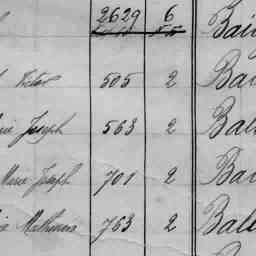 2629 6 Bai
Victor 505 2 Bai
Joseph 563 2 Bal
Marie Joseph 701 2 Bai
Mathieu 763 2 Bal